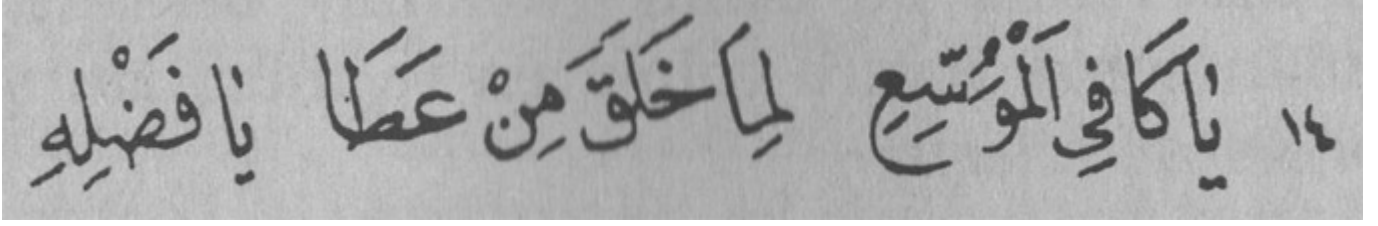 ١٤ يَا كَافِي الْمُوَسِّعِ لِمَا خَلَقَ مِنْ عَطَايَا فَضْلِهِ